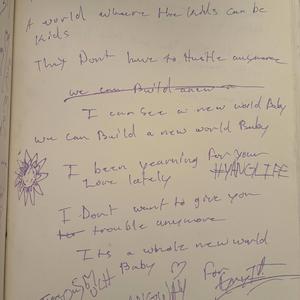 A world where the kids can be
kids
They Dont have to Hustle anymore
we can Build anew
I can see a new world Baby
we can Build a new world Baby
I been yearning for your
Love lately
#YANGLIFE
I Dont want to give you
trouble anymore
Its a whole new world
Baby
For